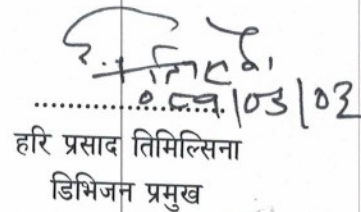 ०८१/०३/०३
........................
हरि प्रसाद तिमिल्सिना
डिभिजन प्रमुख